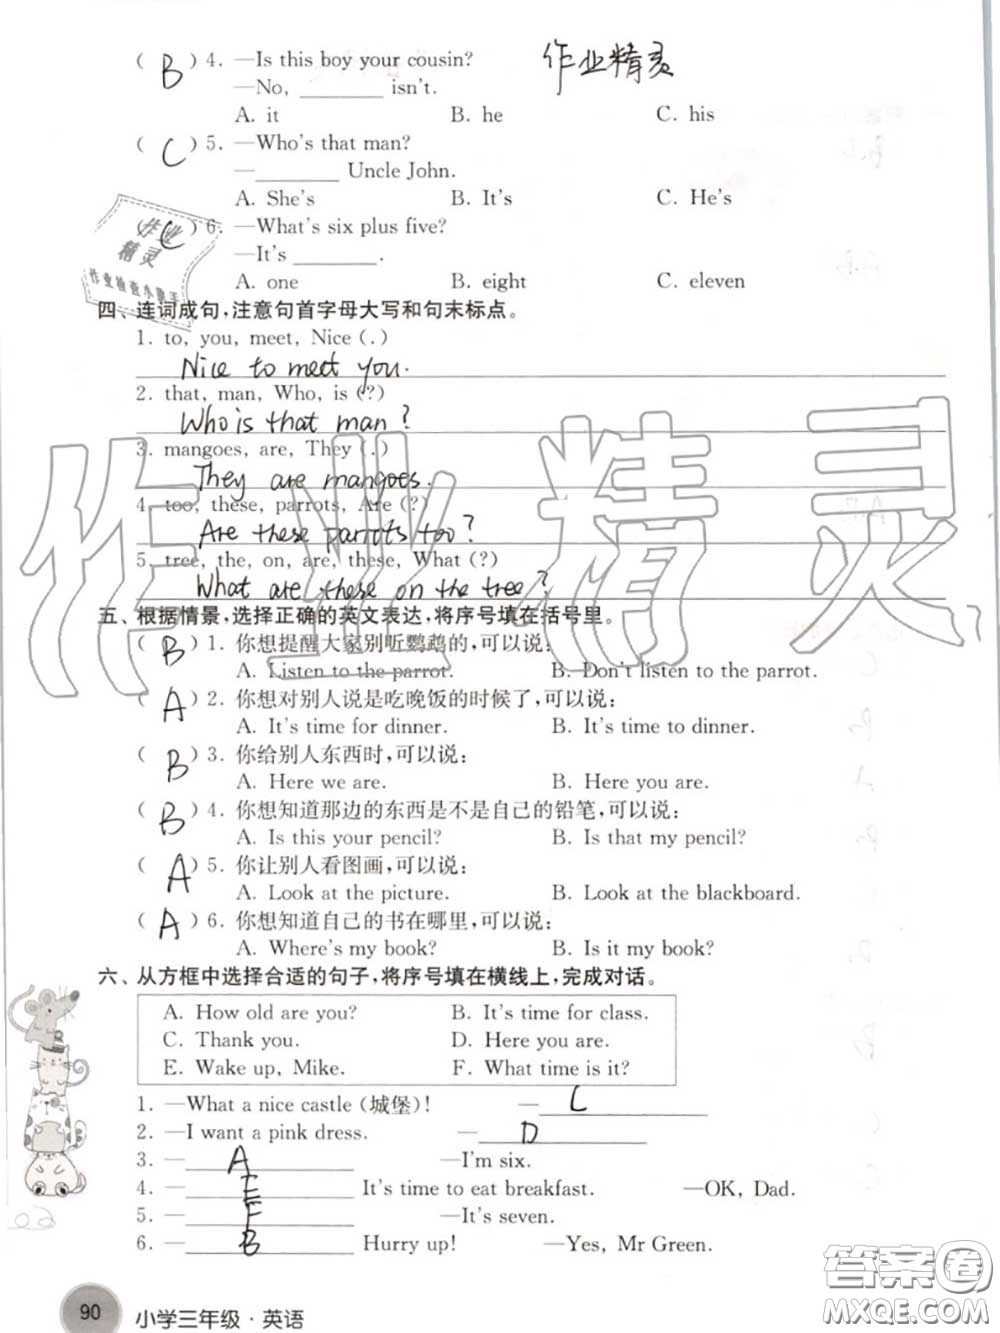 ( B ) 4. —Is this boy your cousin? 作业精灵
—No, ________ isn't.
A. it B. he C. his
( C ) 5. —Who's that man?
—________ Uncle John.
A. She's B. It's C. He's
( C ) 6. —What's six plus five?
—It's ________.
A. one B. eight C. eleven
作业
精灵
作业检查小助手
四、连词成句,注意句首字母大写和句末标点。
1. to, you, meet, Nice (.)
Nice to meet you.
2. that, man, Who, is (?)
Who is that man?
3. mangoes, are, They (.)
They are mangoes.
4. too, these, parrots, Are (?)
Are these parrots too?
5. tree, the, on, are, these, What (?)
What are these on the tree?
作业精灵
五、根据情景,选择正确的英文表达,将序号填在括号里。
( B ) 1. 你想提醒大家别听鹦鹉的,可以说:
A. Listen to the parrot. B. Don't listen to the parrot.
( A ) 2. 你想对别人说是吃晚饭的时候了,可以说:
A. It's time for dinner. B. It's time to dinner.
( B ) 3. 你给别人东西时,可以说:
A. Here we are. B. Here you are.
( B ) 4. 你想知道那边的东西是不是自己的铅笔,可以说:
A. Is this your pencil? B. Is that my pencil?
( A ) 5. 你让别人看图画,可以说:
A. Look at the picture. B. Look at the blackboard.
( A ) 6. 你想知道自己的书在哪里,可以说:
A. Where's my book? B. Is it my book?
六、从方框中选择合适的句子,将序号填在横线上,完成对话。
A. How old are you? B. It's time for class.
C. Thank you. D. Here you are.
E. Wake up, Mike. F. What time is it?
1. —What a nice castle (城堡)! — C
2. —I want a pink dress. — D
3. — A —I'm six.
4. — E It's time to eat breakfast. —OK, Dad.
5. — F —It's seven.
6. — B Hurry up! —Yes, Mr Green.
90 小学三年级·英语
答案圈
MXQE.COM